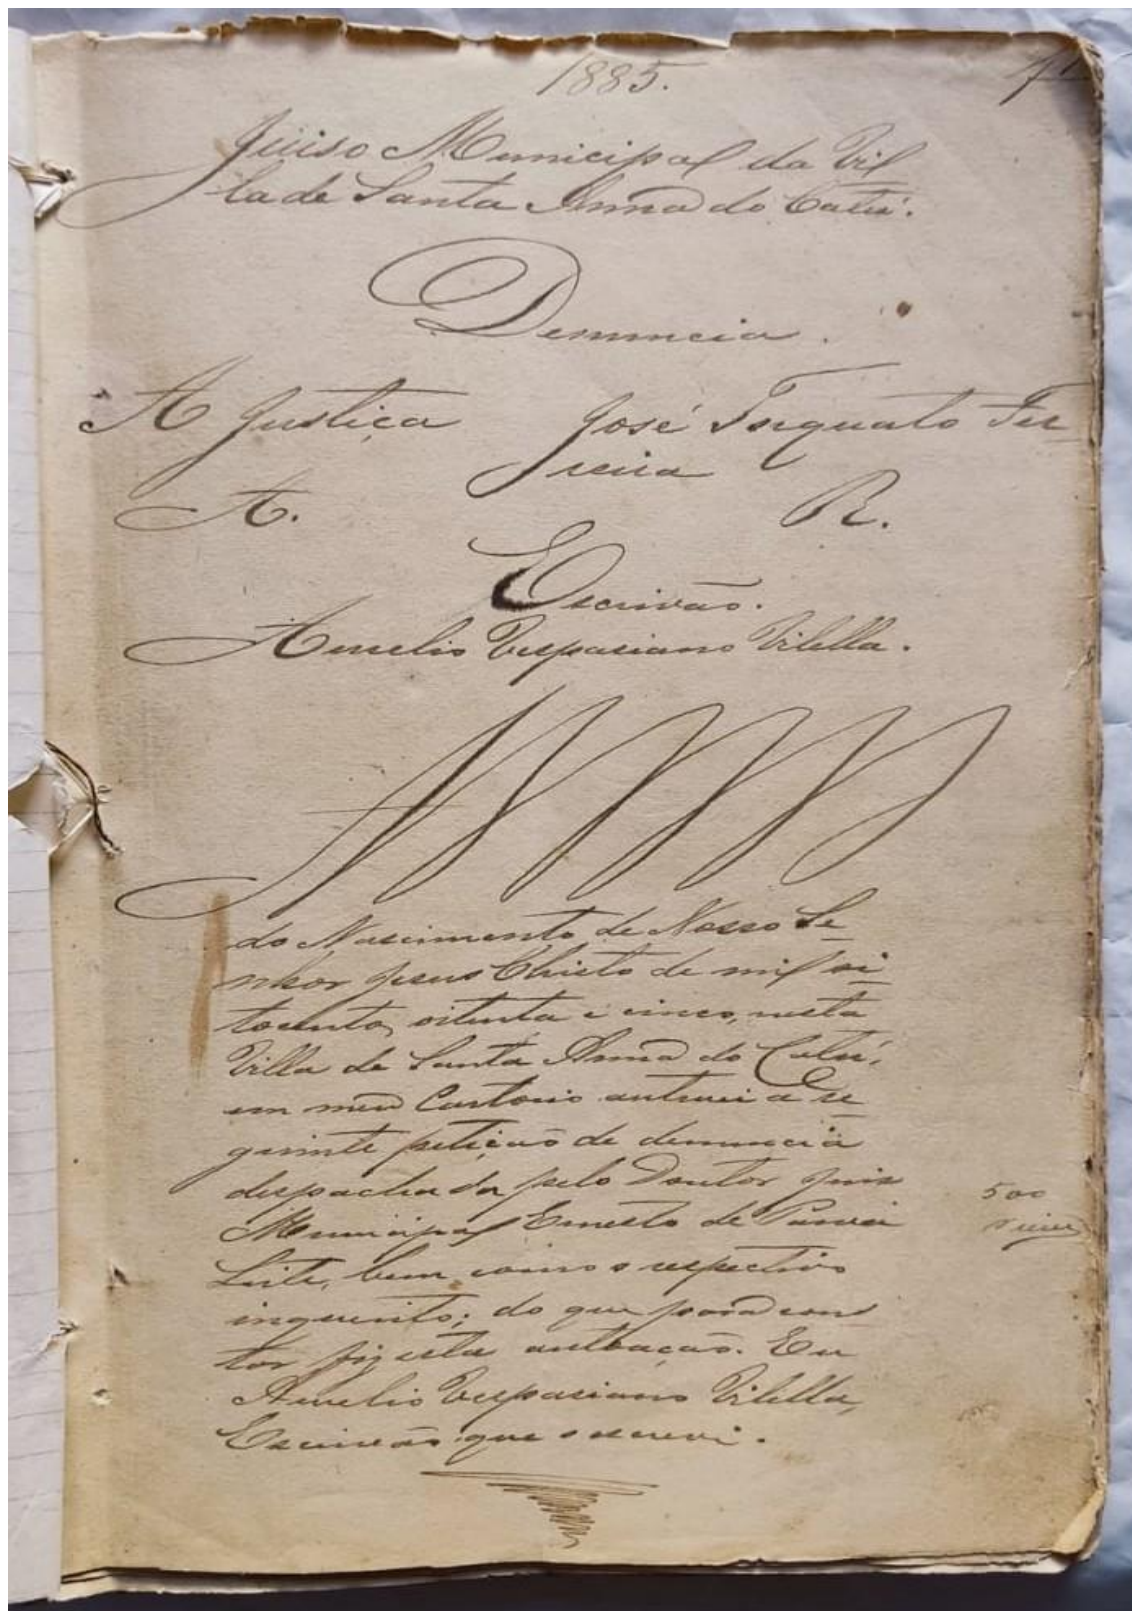 1885.
Juiso Municipal da Vil
la de Santa Anna do Catú.
Denuncia.
A Justiça José Torquato Fer
reira
A. R.
Escrivão.
Aurelio Vespasiano Vilella.
Anno
do Nascimento de Nosso Se
nhor Jesus Christo de mil oi
tocentos oitenta e cinco, nesta
Villa de Santa Anna do Catú,
em meu Cartorio autuei a se
guinte petição de denuncia
despachada pelo Doutor Juiz
Municipal Ernesto de
Leite, bem como o respectivo
inquerito; do que para cons
tar fiz esta autoação. Eu
Aurelio Vespasiano Vilella,
Escrivão que o escrevi.
500